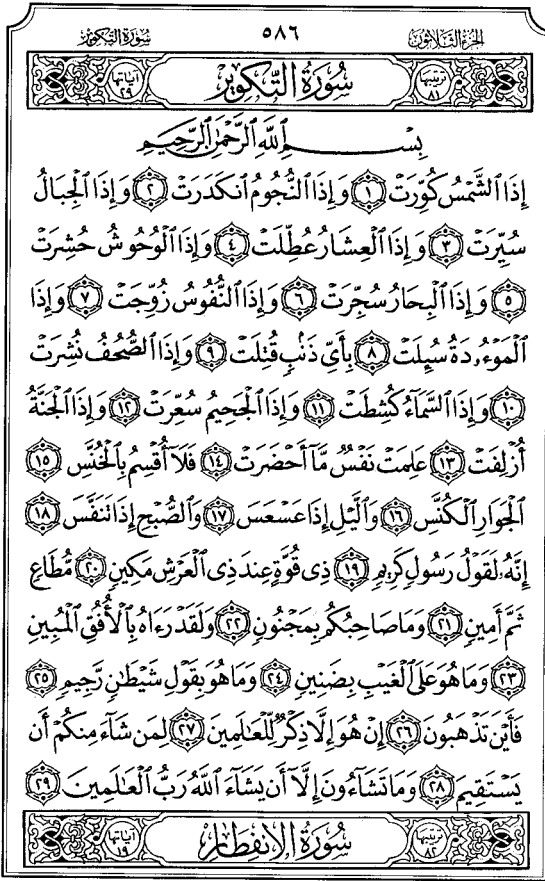 سُورَةُ التَّكْوِيرِ ٥٨٦ الجُزْءُ الثَّلَاثُونَ
آيَاتُهَا ٢٩ سُورَةُ التَّكْوِيرِ تَرْتِيبُهَا ٨١
بِسْمِ ٱللَّهِ ٱلرَّحْمَٰنِ ٱلرَّحِيمِ
إِذَا ٱلشَّمْسُ كُوِّرَتْ ١ وَإِذَا ٱلنُّجُومُ ٱنكَدَرَتْ ٢ وَإِذَا ٱلْجِبَالُ
سُيِّرَتْ ٣ وَإِذَا ٱلْعِشَارُ عُطِّلَتْ ٤ وَإِذَا ٱلْوُحُوشُ حُشِرَتْ
٥ وَإِذَا ٱلْبِحَارُ سُجِّرَتْ ٦ وَإِذَا ٱلنُّفُوسُ زُوِّجَتْ ٧ وَإِذَا
ٱلْمَوْءُۥدَةُ سُئِلَتْ ٨ بِأَىِّ ذَنۢبٍ قُتِلَتْ ٩ وَإِذَا ٱلصُّحُفُ نُشِرَتْ
١٠ وَإِذَا ٱلسَّمَآءُ كُشِطَتْ ١١ وَإِذَا ٱلْجَحِيمُ سُعِّرَتْ ١٢ وَإِذَا ٱلْجَنَّةُ
أُزْلِفَتْ ١٣ عَلِمَتْ نَفْسٌ مَّآ أَحْضَرَتْ ١٤ فَلَآ أُقْسِمُ بِٱلْخُنَّسِ ١٥
ٱلْجَوَارِ ٱلْكُنَّسِ ١٦ وَٱلَّيْلِ إِذَا عَسْعَسَ ١٧ وَٱلصُّبْحِ إِذَا تَنَفَّسَ ١٨
إِنَّهُۥ لَقَوْلُ رَسُولٍ كَرِيمٍ ١٩ ذِى قُوَّةٍ عِندَ ذِى ٱلْعَرْشِ مَكِينٍ ٢٠ مُّطَاعٍ
ثَمَّ أَمِينٍ ٢١ وَمَا صَاحِبُكُم بِمَجْنُونٍ ٢٢ وَلَقَدْ رَءَاهُ بِٱلْأُفُقِ ٱلْمُبِينِ
٢٣ وَمَا هُوَ عَلَى ٱلْغَيْبِ بِضَنِينٍ ٢٤ وَمَا هُوَ بِقَوْلِ شَيْطَٰنٍ رَّجِيمٍ ٢٥
فَأَيْنَ تَذْهَبُونَ ٢٦ إِنْ هُوَ إِلَّا ذِكْرٌ لِّلْعَٰلَمِينَ ٢٧ لِمَن شَآءَ مِنكُمْ أَن
يَسْتَقِيمَ ٢٨ وَمَا تَشَآءُونَ إِلَّآ أَن يَشَآءَ ٱللَّهُ رَبُّ ٱلْعَٰلَمِينَ ٢٩
آيَاتُهَا ١٩ سُورَةُ الانفِطَارِ تَرْتِيبُهَا ٨٢